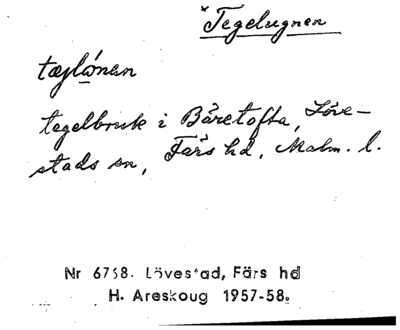 * Tegelugnen
tæjlónen
tegelbruk i Båretofta, Löve-
stads sn, Färs hd, Malm. l.
Nr 6758. Lövestad, Färs hd
H. Areskoug 1957-58.